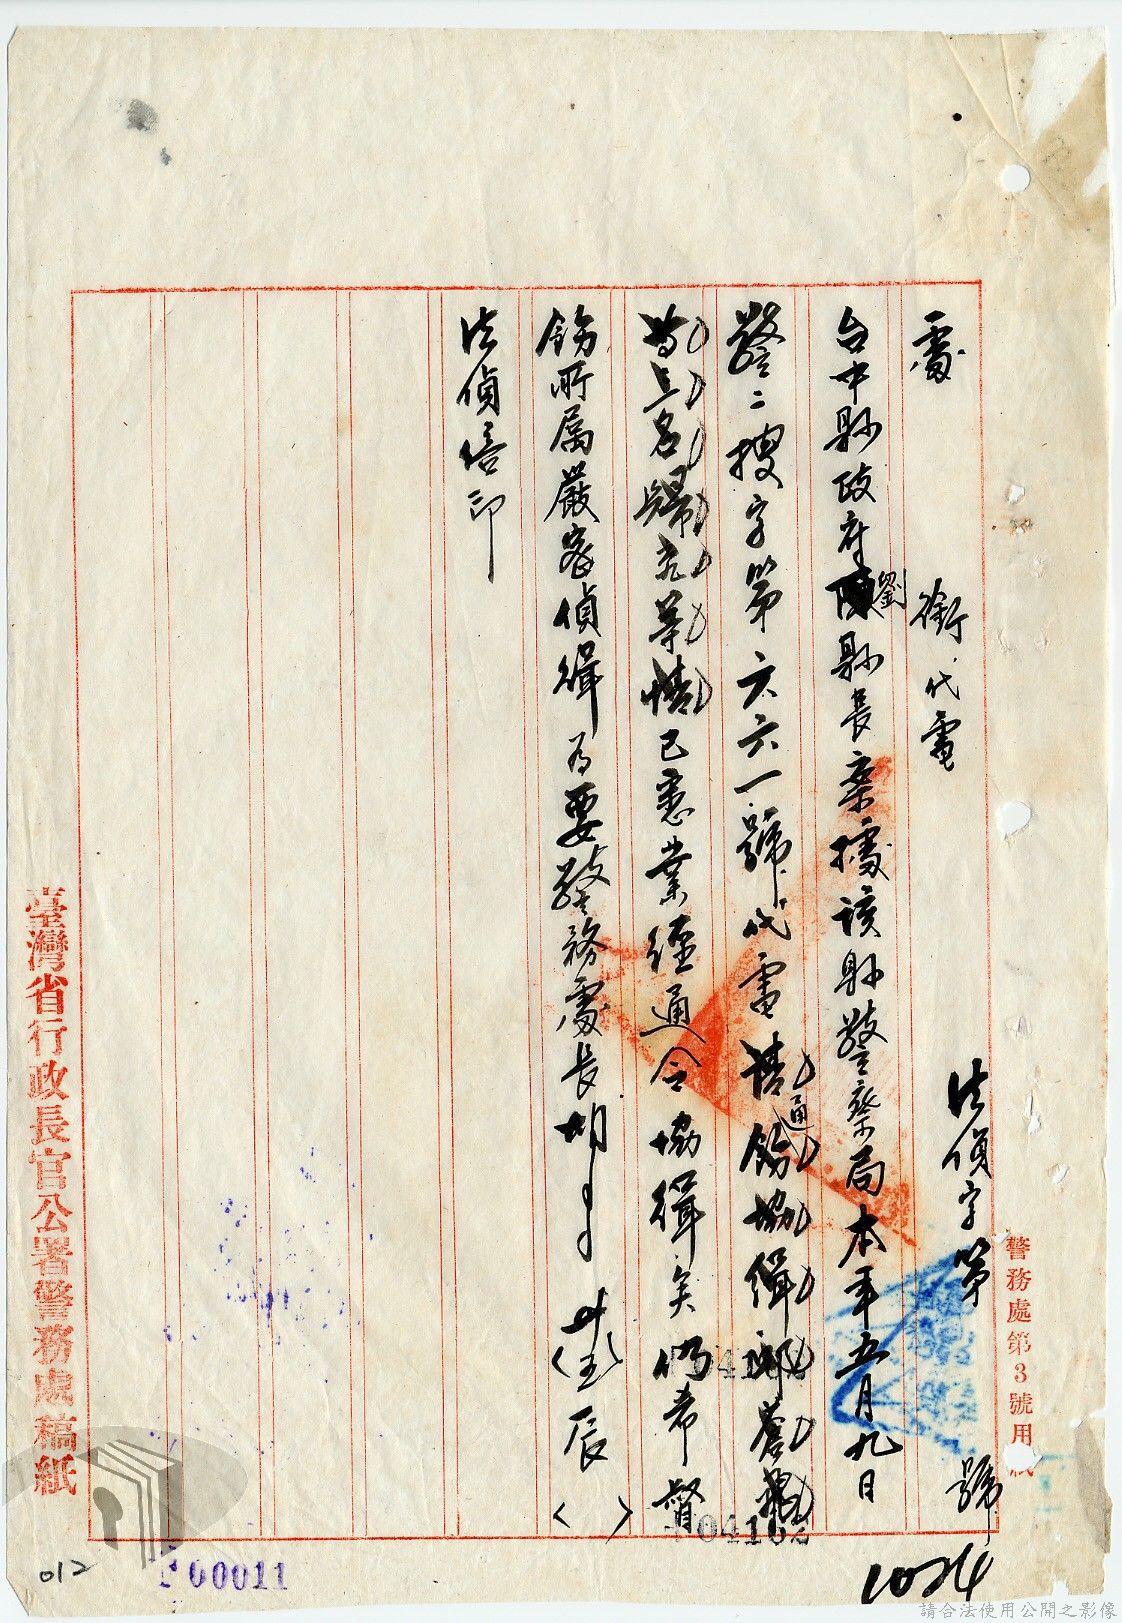 警務處第3號用紙
法偵字第 號
1024
處 銜代電
台中縣政府劉縣長案據該縣警察局本年五月九日
警二搜字第六六一號代電請通飭協緝
等情已悉業經通令協緝矣仍希督
飭所屬嚴密偵緝為要警務處長胡 辰( )
法偵 印
臺灣省行政長官公署警務處稿紙
012
00011
請合法使用公開之影像